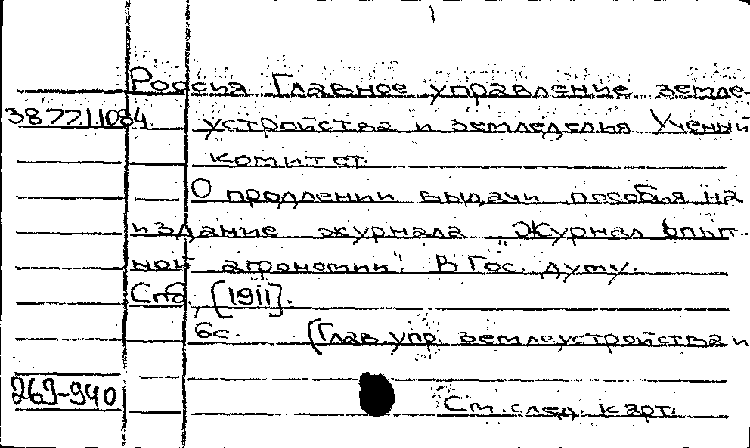 Россия Главное управление земле-
38 7711084 устройства и земледелия Ученый
комитет.
О продлении выдачи пособия на
издание журнала "Журнал опыт-
ной агрономии". В Гос. думу.
Спб, [1911].
6с. (Глав. упр. землеустройства и
269-940
См. след. карт.